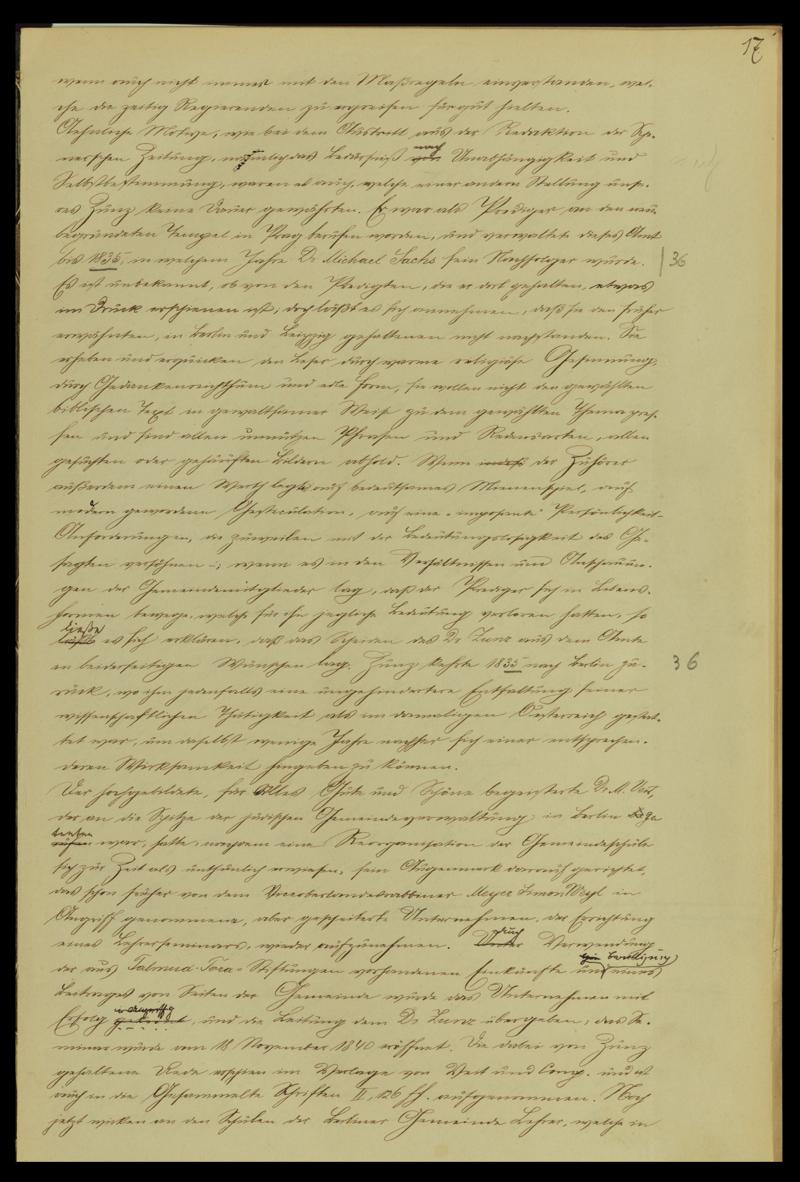 17
wenn auch nicht immer mit den Maßregeln einverstanden, wel-
che die zeitig Regierenden zu ergreifen für gut hielten.
Aehnliche Motive, wie bei dem Austritt aus der Redaktion der Spe-
nerschen Zeitung, nämlich das Bedürfniß nach Unabhängigkeit und
Selbstbestimmung, waren es auch, welche einer andern Stellung unse-
res Zunz keine Dauer gewährten. Er war als Prediger an den neu-
begründeten Tempel in Prag berufen worden, und verwaltete dieses Amt
bis 1835, in welchem Jahre Dr Michael Sachs sein Nachfolger wurde. 36
Es ist unbekannt, ob von den Predigten, die er dort gehalten, etwas
im Druck erschienen ist, doch läßt es sich annehmen, daß sie den früher
erwähnten, in Berlin und Leipzig gehaltenen nicht nachstanden. Sie
erheben und erquicken den Leser durch warme religiöse Gesinnung,
durch Gedankenreichthum und edle Form, sie wollen nicht den gewählten
biblischen Text in gewaltsamer Weise zu dem gewählten Thema pres-
sen und sind allen unnützen Phrasen und Redensarten, allen
gesuchten oder gehäuften Bildern abhold. Wenn indeß der Zuhörer
außerdem einen Werth legte auf bedeutsames Mienenspiel, auf
modern gewordene Gesticulation, auf eine "imposante" Persönlichkeit –
Anforderungen, die zuweilen mit der Bedeutungslosigkeit des Ge-
sagten versöhnen –; wenn es in den Verhältnissen und Anschauun-
gen der Gemeindemitglieder lag, daß der Prediger sich in Lebens-
formen bewege, welche für ihn jegliche Bedeutung verloren hatten, so
ließe
läßt es sich erklären, daß das Scheiden des Dr Zunz aus dem Amte
in beiderseitigen Wünschen lag. Zunz kehrte 1835 nach Berlin zu- 36
rück, wo ihm jedenfalls eine ungehindertere Entfaltung seiner
wissenschaftlichen Thätigkeit als im damaligen Oesterreich gestat-
tet war, um daselbst wenige Jahre nachher sich einer entsprechen-
deren Wirksamkeit hingeben zu können.
Der hochgebildete, für alles Gute und Schöne begeisterte Dr. M. Veit,
der an die Spitze der jüdischen Gemeindeverwaltung in Berlin ge
treten
war, hatte, nachdem eine Reorganisation der Gemeindeschule
sich zur Zeit als unthunlich erwiesen, sein Augenmerk darauf gerichtet,
das schon früher von dem Viceoberlandesrabbiner Meyer Simon Weyl in
Angriff genommene, aber gescheiterte Unternehmen, der Errichtung
eines Lehrerseminars, wieder aufzunehmen. Durch Verwendung
der aus Talmud-Tora-Stiftungen vorhandenen Einkünfte und Bewilligung eines
Beitrages von Seiten der Gemeinde wurde das Unternehmen mit
Erfolg in Angriff g und die Leitung dem Dr Zunz übergeben; das Se-
minar wurde am 18 November 1840 eröffnet. Die dabei von Zunz
gehaltene Rede erschien im Verlage von Veit und Comp. und ist
auch in die Gesammelte Schriften II, 126 ff. aufgenommen. Noch
jetzt wirken an den Schulen der Berliner Gemeinde Lehrer, welche in